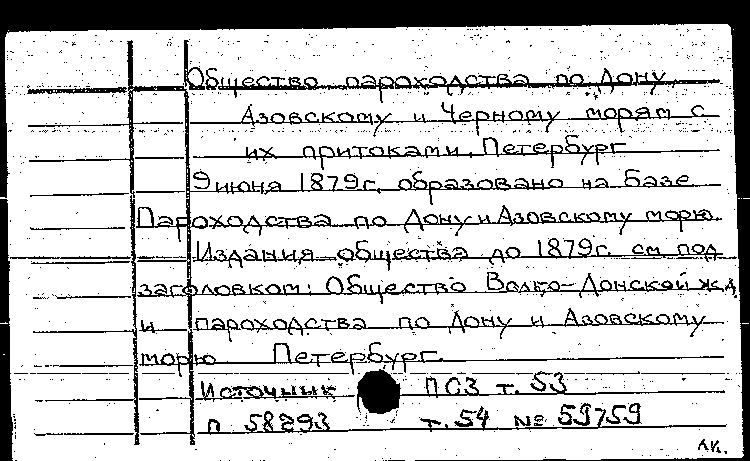 Общество пароходства по Дону,
Азовскому и Черному морям с
их притоками. Петербург
9 июня 1879 г. образовано на базе
Пароходства по Дону и Азовскому морю.
Издания общества до 1879 г. см под
заголовком: Общество Волго-Донской ж.д
и пароходства по Дону и Азовскому
морю Петербург.
Источник ПСЗ т. 53
п 58293 т. 54 № 59759
АК.